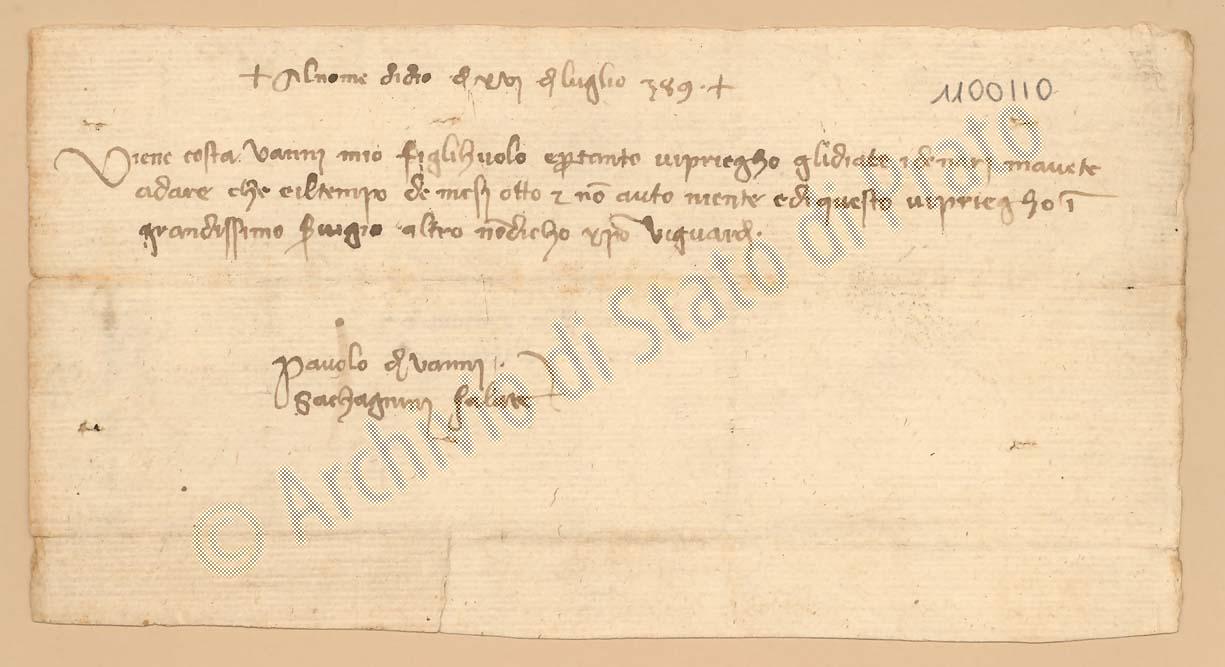 + Al nome di dio d xvi d luglio 389 · +
1100110
Viene costa Vanni mio figlihuolo e pertanto vi priegho gli diate i denari mavete
a dare che e il tempo de mesi otto e nō auto niente e di questo vi priegho ī
grandissimo servigio altro nō dicho xpō vi guardi ·
Pavolo d vanni
Sachagnini salute
© Archivio di Stato di Prato